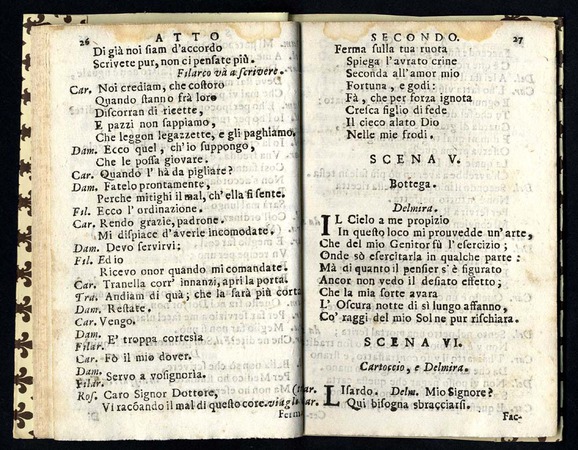 26 ATTO
Di già noi siam d'accordo
Scrivete pur, non ci pensate più.
Filarco và a scrivere.
Car. Noi crediam, che costoro
Quando stanno frà loro
Discorran di ricette,
E pazzi non sappiamo,
Che leggon legazzette, e gli paghiamo.
Dam. Ecco quel, ch'io suppongo,
Che le possa giovare.
Car. Quando l' hà da pigliare?
Dam. Fatelo prontamente,
Perche mitighi il mal, ch'ella si sente.
Fil. Ecco l'ordinazione.
Car. Rendo grazie, padrone.
Mi dispiace d'averle incomodate.
Dam. Devo servirvi:
Fil. Ed io
Ricevo onor quando mi comandate.
Car. Tranella cor' innanzi, apri la porta.
Tra. Andiam di quà; che la farà più corta
Dam. Restate.
Car. Vengo.
Dam.
Filar. E' troppa cortesia
Car. Fò il mio dover.
Dam.
Filar. Servo a vosignoria.
Ros. Caro Signor Dottore,
Vi racōando il mal di questo core. viag
Ferma
SECONDO. 27
Ferma sulla tua ruota
Spiega l'avrato crine
Seconda all'amor mio
Fortuna, e godi:
Fà, che per forza ignota
Cresca figlio di fede
Il cieco alato Dio
Nelle mie frodi.
SCENA V.
Bottega.
Delmira.
IL Cielo a me propizio
In questo loco mi provvedde un'arte,
Che del mio Genitor fù l'esercizio;
Onde sò esercitarla in qualche parte:
Mà di quanto il pensier s'è figurato
Ancor non vedo il desiato effetto;
Che la mia sorte avara
L' Oscura notte di sì lungo affanno,
Co' raggi del mio Sol ne pur rischiara.
SCENA VI.
Cartoccio, e Delmira.
LIsardo. Delm. Mio Signore?
Car. Qui bisogna sbracciarsi.
Fac-